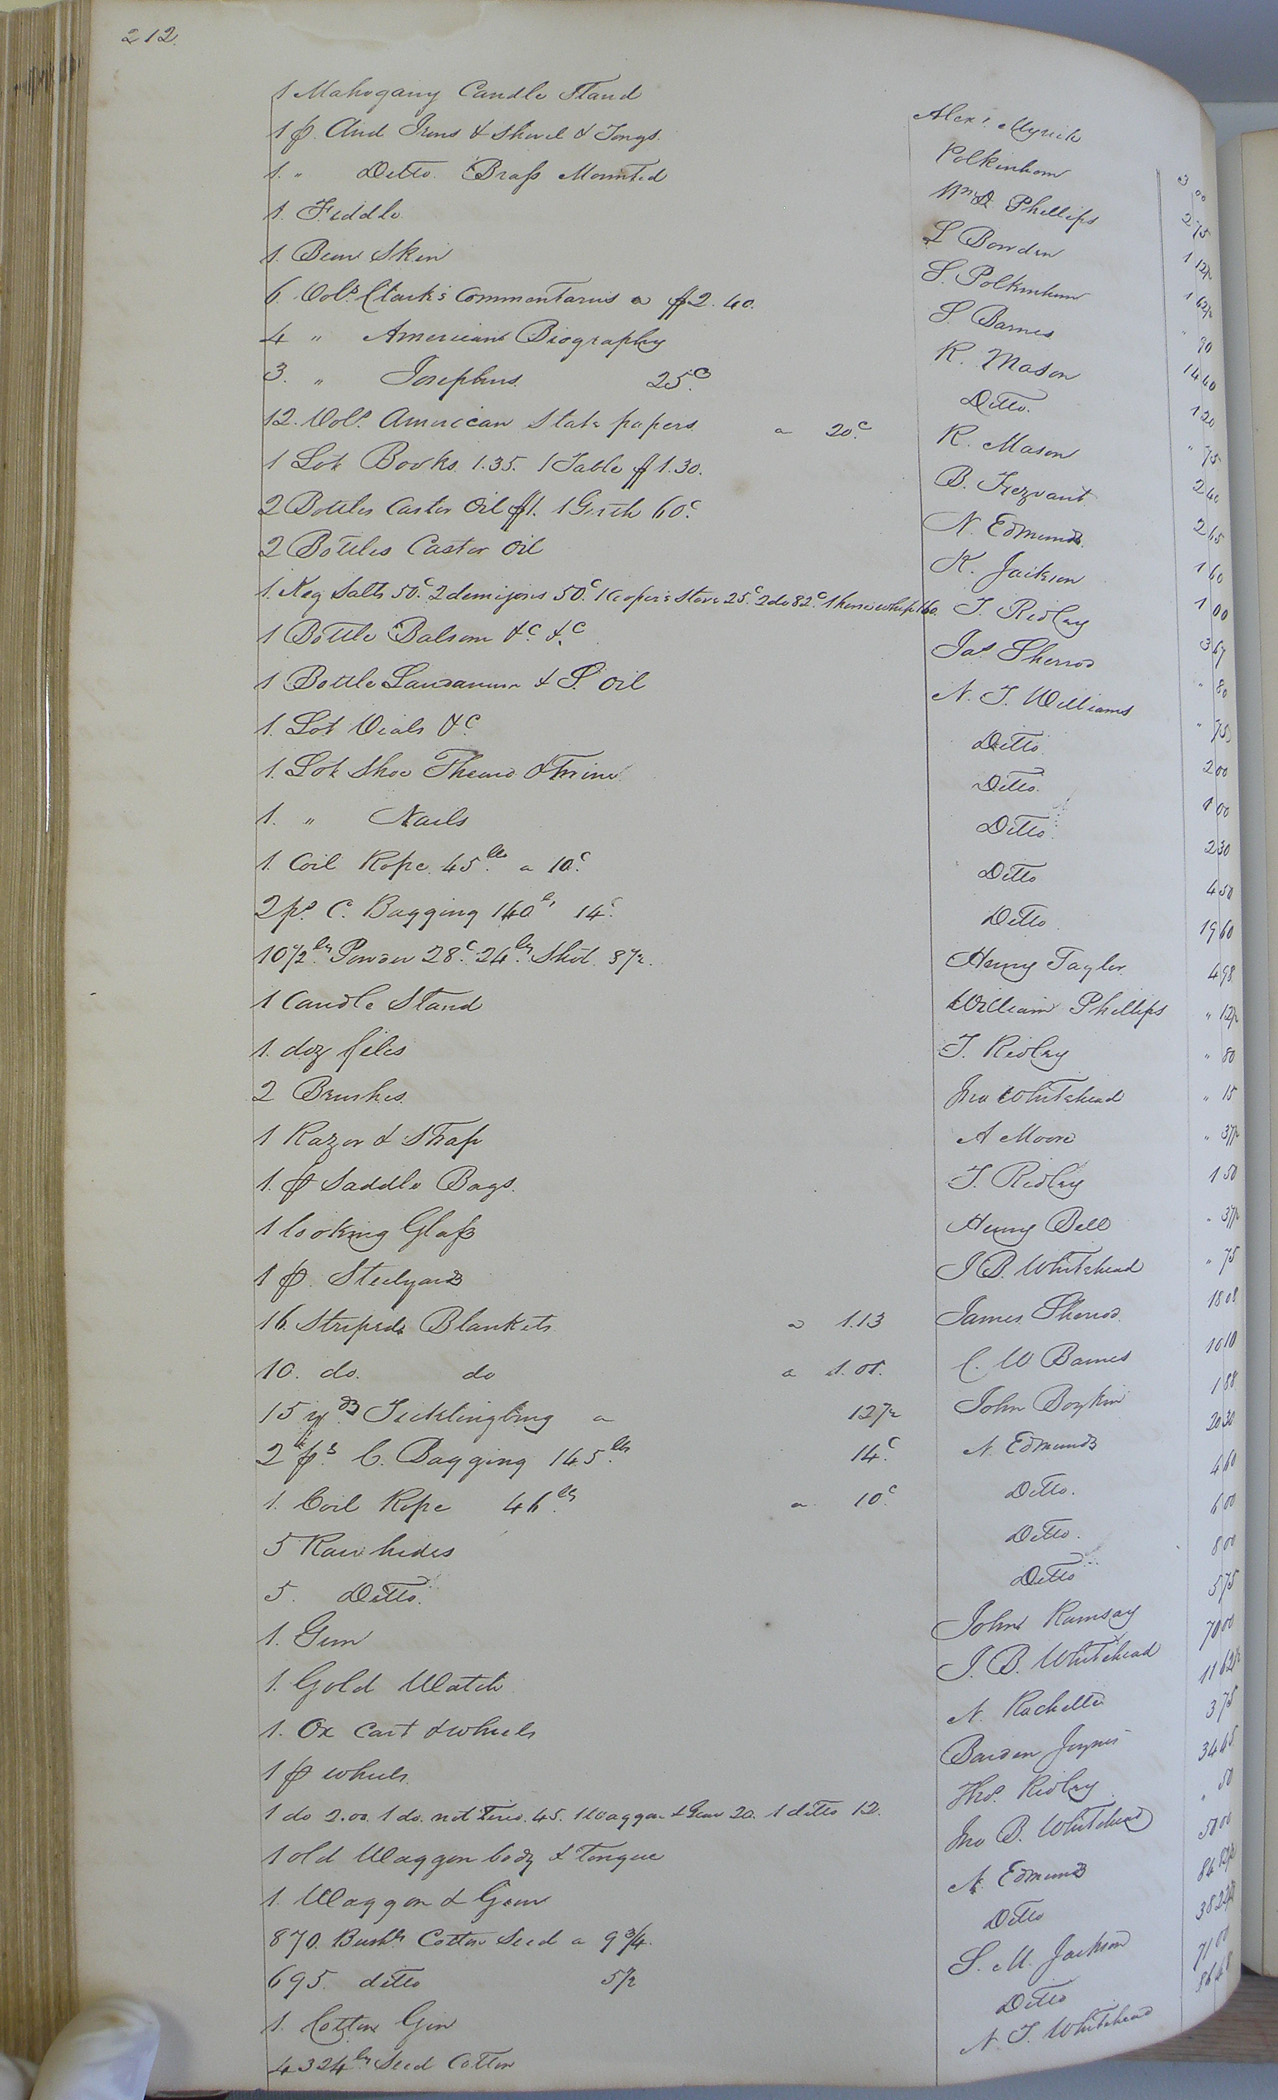 212.
1 Mahogany Candle Stand Alexr. Myrick 3 00
1 p. And Irons & Shovel & Tongs. Polkinhorn 2 75
1. " Ditto. Brass Mounted Wm D Phillips 1 12½
1. Fiddle L Bowden 1 62½
1. Bear Skin S. Polkinhorn " 90
6 Vols. Clark's Commentaries a $2.40. S. Barnes 14 40
4 " American Biography R. Mason 1 20
3. " Josephus 25c. Ditto. " 75
12. Vols. American State papers a 20c. R. Mason 2 40
1 Lot Books 1.35. 1 Table $1.30. B. Trezvant 2 65
2 Bottles Castor Oil $1. 1 Girth 60c. N. Edmunds 1 60
2 Bottles Castor Oil K. Jackson 1 00
1. Keg Salts 50c. 2 demijons 50c. 1 Cooper's Stove 25c. 2 do 82c. 1 horse whip 160. T. Ridley 3 67
1 Bottle Balsom &c. &c. Jas Sherrod " 80
1 Bottle Laudanum & S. Oil N. T. Williams " 75
1. Lot Vials &c. Ditto 2 00
1. Lot Shoe Thread & Twine Ditto. 1 00
1. " Nails Ditto 2 30
1. Coil Rope 45lbs. a 10c. Ditto 4 50
2 ps. C. Bagging 140lbs 14c. Ditto 19 60
10½lbs Powder 28c. 24lbs. Shot 8½. Henry Taylor 4 98
1 Candle Stand William Phillips " 12½
1. doz files T. Ridley " 80
2 Brushes Jno Whitehead " 15
1 Razor & Strap A Moore " 37½
1. p Saddle Bags. T. Ridley 1 50
1 looking Glass Henry Bell " 37½
1 p. Steelyards J B. Whitehead " 75
16 Striped Blankets a 1.13 James Sherrod 18 08
10. do. do a 1.01. C. W Barnes 10 10
15 yds. Ticklingburg a 12½ John Boykin 1 88
2 ps. C. Bagging 145lbs. 14c. N. Edmunds 20 30
1. Coil Rope 46lbs. a 10c. Ditto. 4 60
5 Raw hides Ditto. 6 00
5. Ditto. Ditto 8 00
1. Gun John Ramsay 5 75
1. Gold Watch J. B. Whitehead 70 00
1. Ox Cart & wheels N. Rachelle 11 62½
1 p wheels. Barden Joyner 3 75
1 do 2.00. 1 do. not Tired. 45. 1 Waggon & Gear 20. 1 ditto 12. Thos. Ridley 34 45
1 old Waggon body & Tongue Jno B. Whitehead " 50
1. Waggon & Gear N. Edmunds 50 00
870. Bushls Cotton Seed a 9¾. Ditto 84 82½
695. ditto 5½ S. M. Jackson 38 22½
1. Cotton Gin Ditto 71 00
4324lbs Seed Cotton N. T. Whitehead 86 48